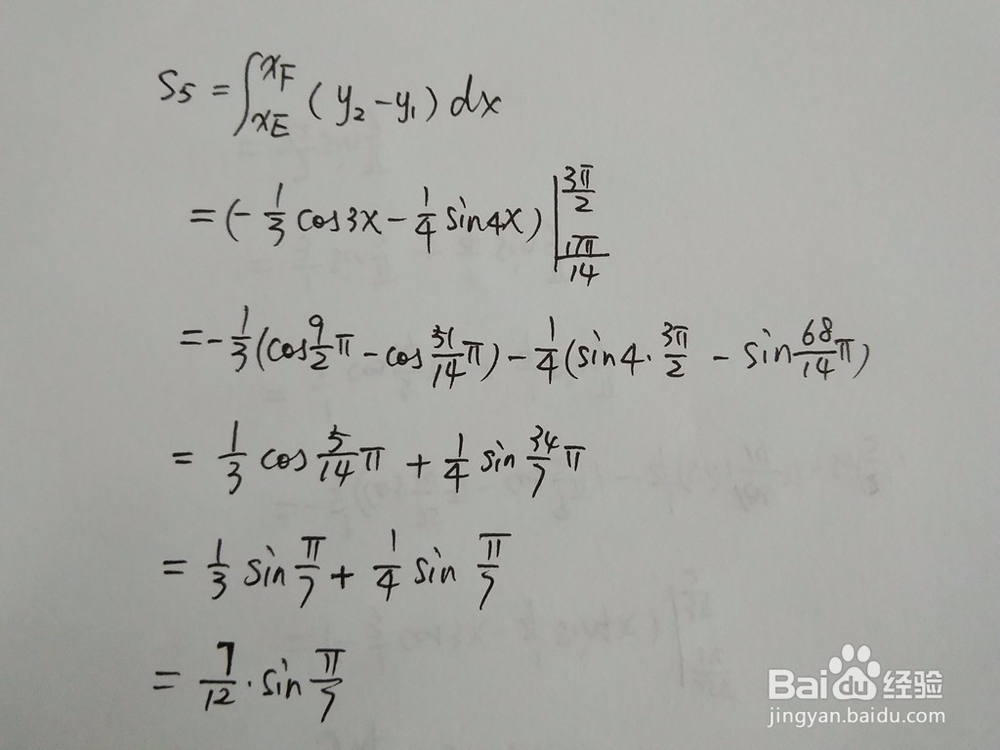 S5 = ∫_{xE}^{xF} (y₂-y₁) dx
= (-1/3 cos3x - 1/4 sin4x) |_{17π/14}^{3π/2}
= -1/3 (cos 9/2 π - cos 51/14 π) - 1/4 (sin4·3π/2 - sin 68/14 π)
= 1/3 cos 5/14 π + 1/4 sin 34/7 π
= 1/3 sin π/7 + 1/4 sin π/7
= 7/12 · sin π/7
Baidu 经验
jingyan.baidu.com